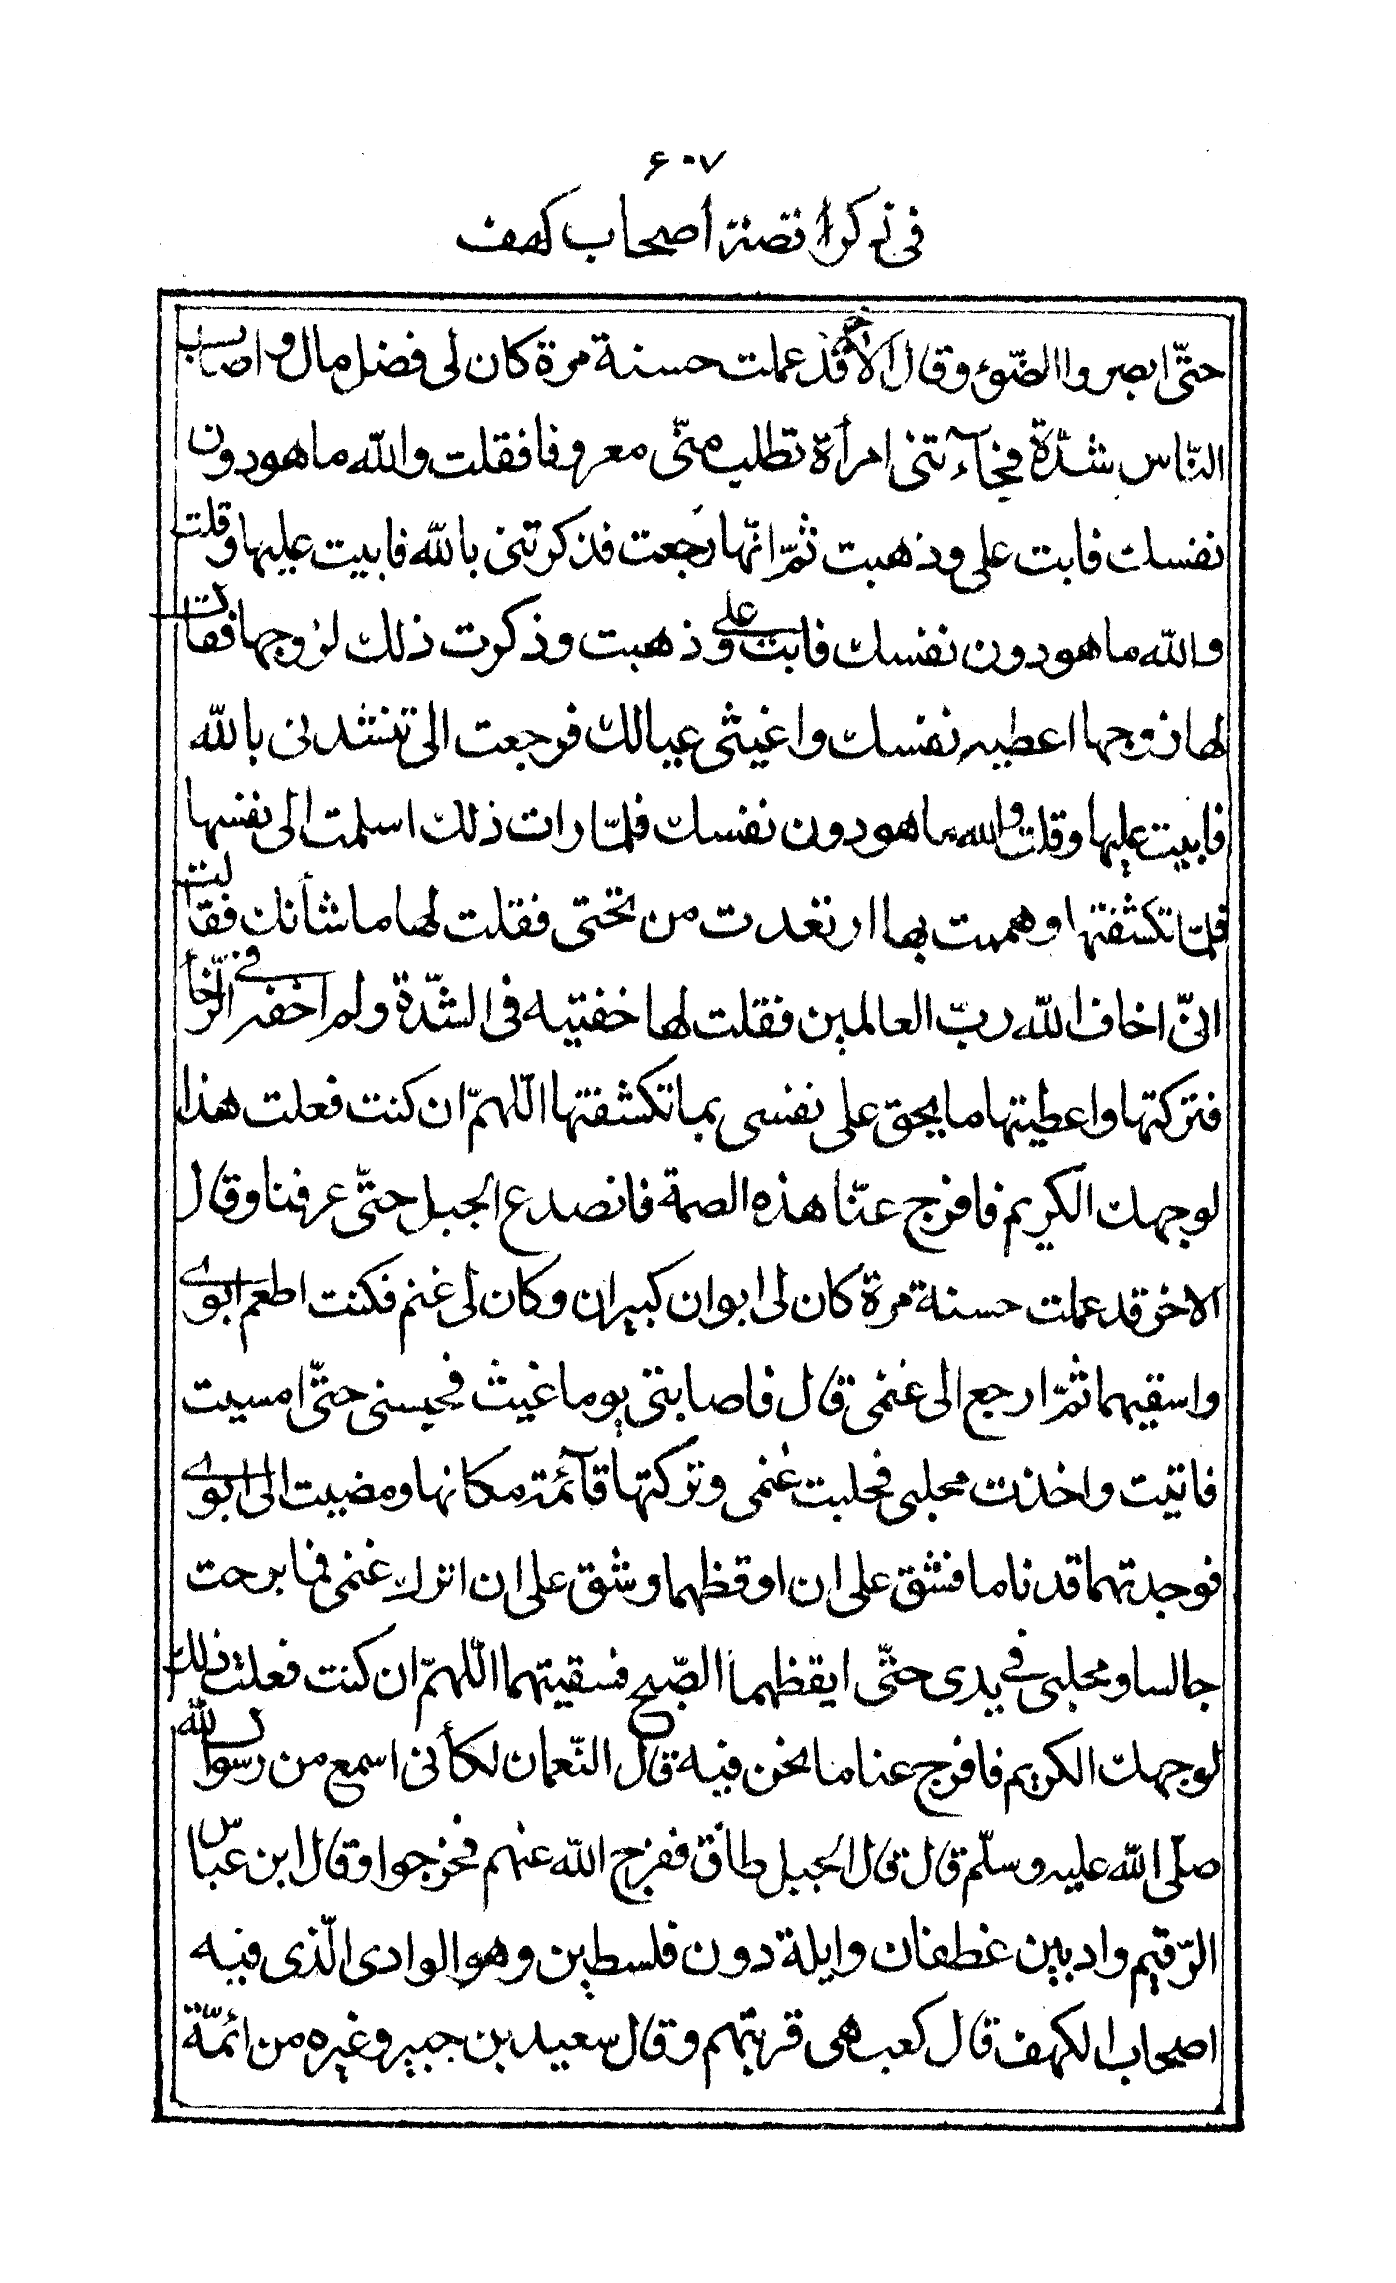 ٦٠٧
في ذكر قصة أصحاب كهف
حتّى ابصروا الضّوء وقال الآخر قد عملت حسنة مرة كان لى فضل مال واصاب
النّاس شدّة فجآءتنى امرأة تطلب منّى معروفا فقلت والله ما هو دون
نفسك فابت على وذهبت ثمّ انّها رجعت فذكرتنى بالله فابيت عليها وقلت
والله ما هو دون نفسك فابت علىّ وذهبت وذكرت ذلك لزوجها فقال
لها زوجها اعطيه نفسك واغيثى عيالك فرجعت الى تنشدنى بالله
فابيت عليها وقلت والله ما هو دون نفسك فلمّا رات ذلك اسلمت الى نفسها
فلمّا تكشفتها وهممت بها ارتعدت من تحتى فقلت لها ما شأنك فقالت
انّى اخاف الله ربّ العالمين فقلت لها خفتيه فى الشّدة ولم اخفه فى الرّخا
فتركتها واعطيتها ما يحق على نفسى بما تكشفتها اللّهمّ ان كنت فعلت هذا
لوجهك الكريم فافرج عنّا هذه الصمة فانصدع الجبل حتّى عرفنا وقال
الاخر قد عملت حسنة مرة كان لى ابوان كبيران وكان لى غنم فكنت اطعم ابوى
واسقيهما ثمّ ارجع الى غنمى قال فاصابنى يوما غيث فحبسنى حتّى امسيت
فاتيت واخذت محلبى فحلبت غنمى وتركتها قآئمة مكانها ومضيت الى ابوى
فوجدتهما قد ناما فشق على ان اوقظهما وشق على ان اترك غنمى فما برحت
جالسا ومحلبى فى يدى حتّى ايقظهما الصّبح فسقيتهما اللّهمّ ان كنت فعلت ذلك
لوجهك الكريم فافرج عنا ما نحن فيه قال النّعمان لكأنى اسمع من رسول الله
صلّى الله عليه وسلّم قال قال الجبل طاق ففرج الله عنهم فخرجوا وقال ابن عبّاس
الرّقيم واد بين غطفان وايلة دون فلسطين وهو الوادى الّذى فيه
اصحاب الكهف قال كعب هى قريتهم وقال سعيد بن جبير وغيره من ائمّة